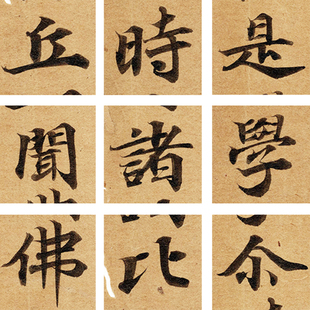 是學尒
時諸比
丘聞佛